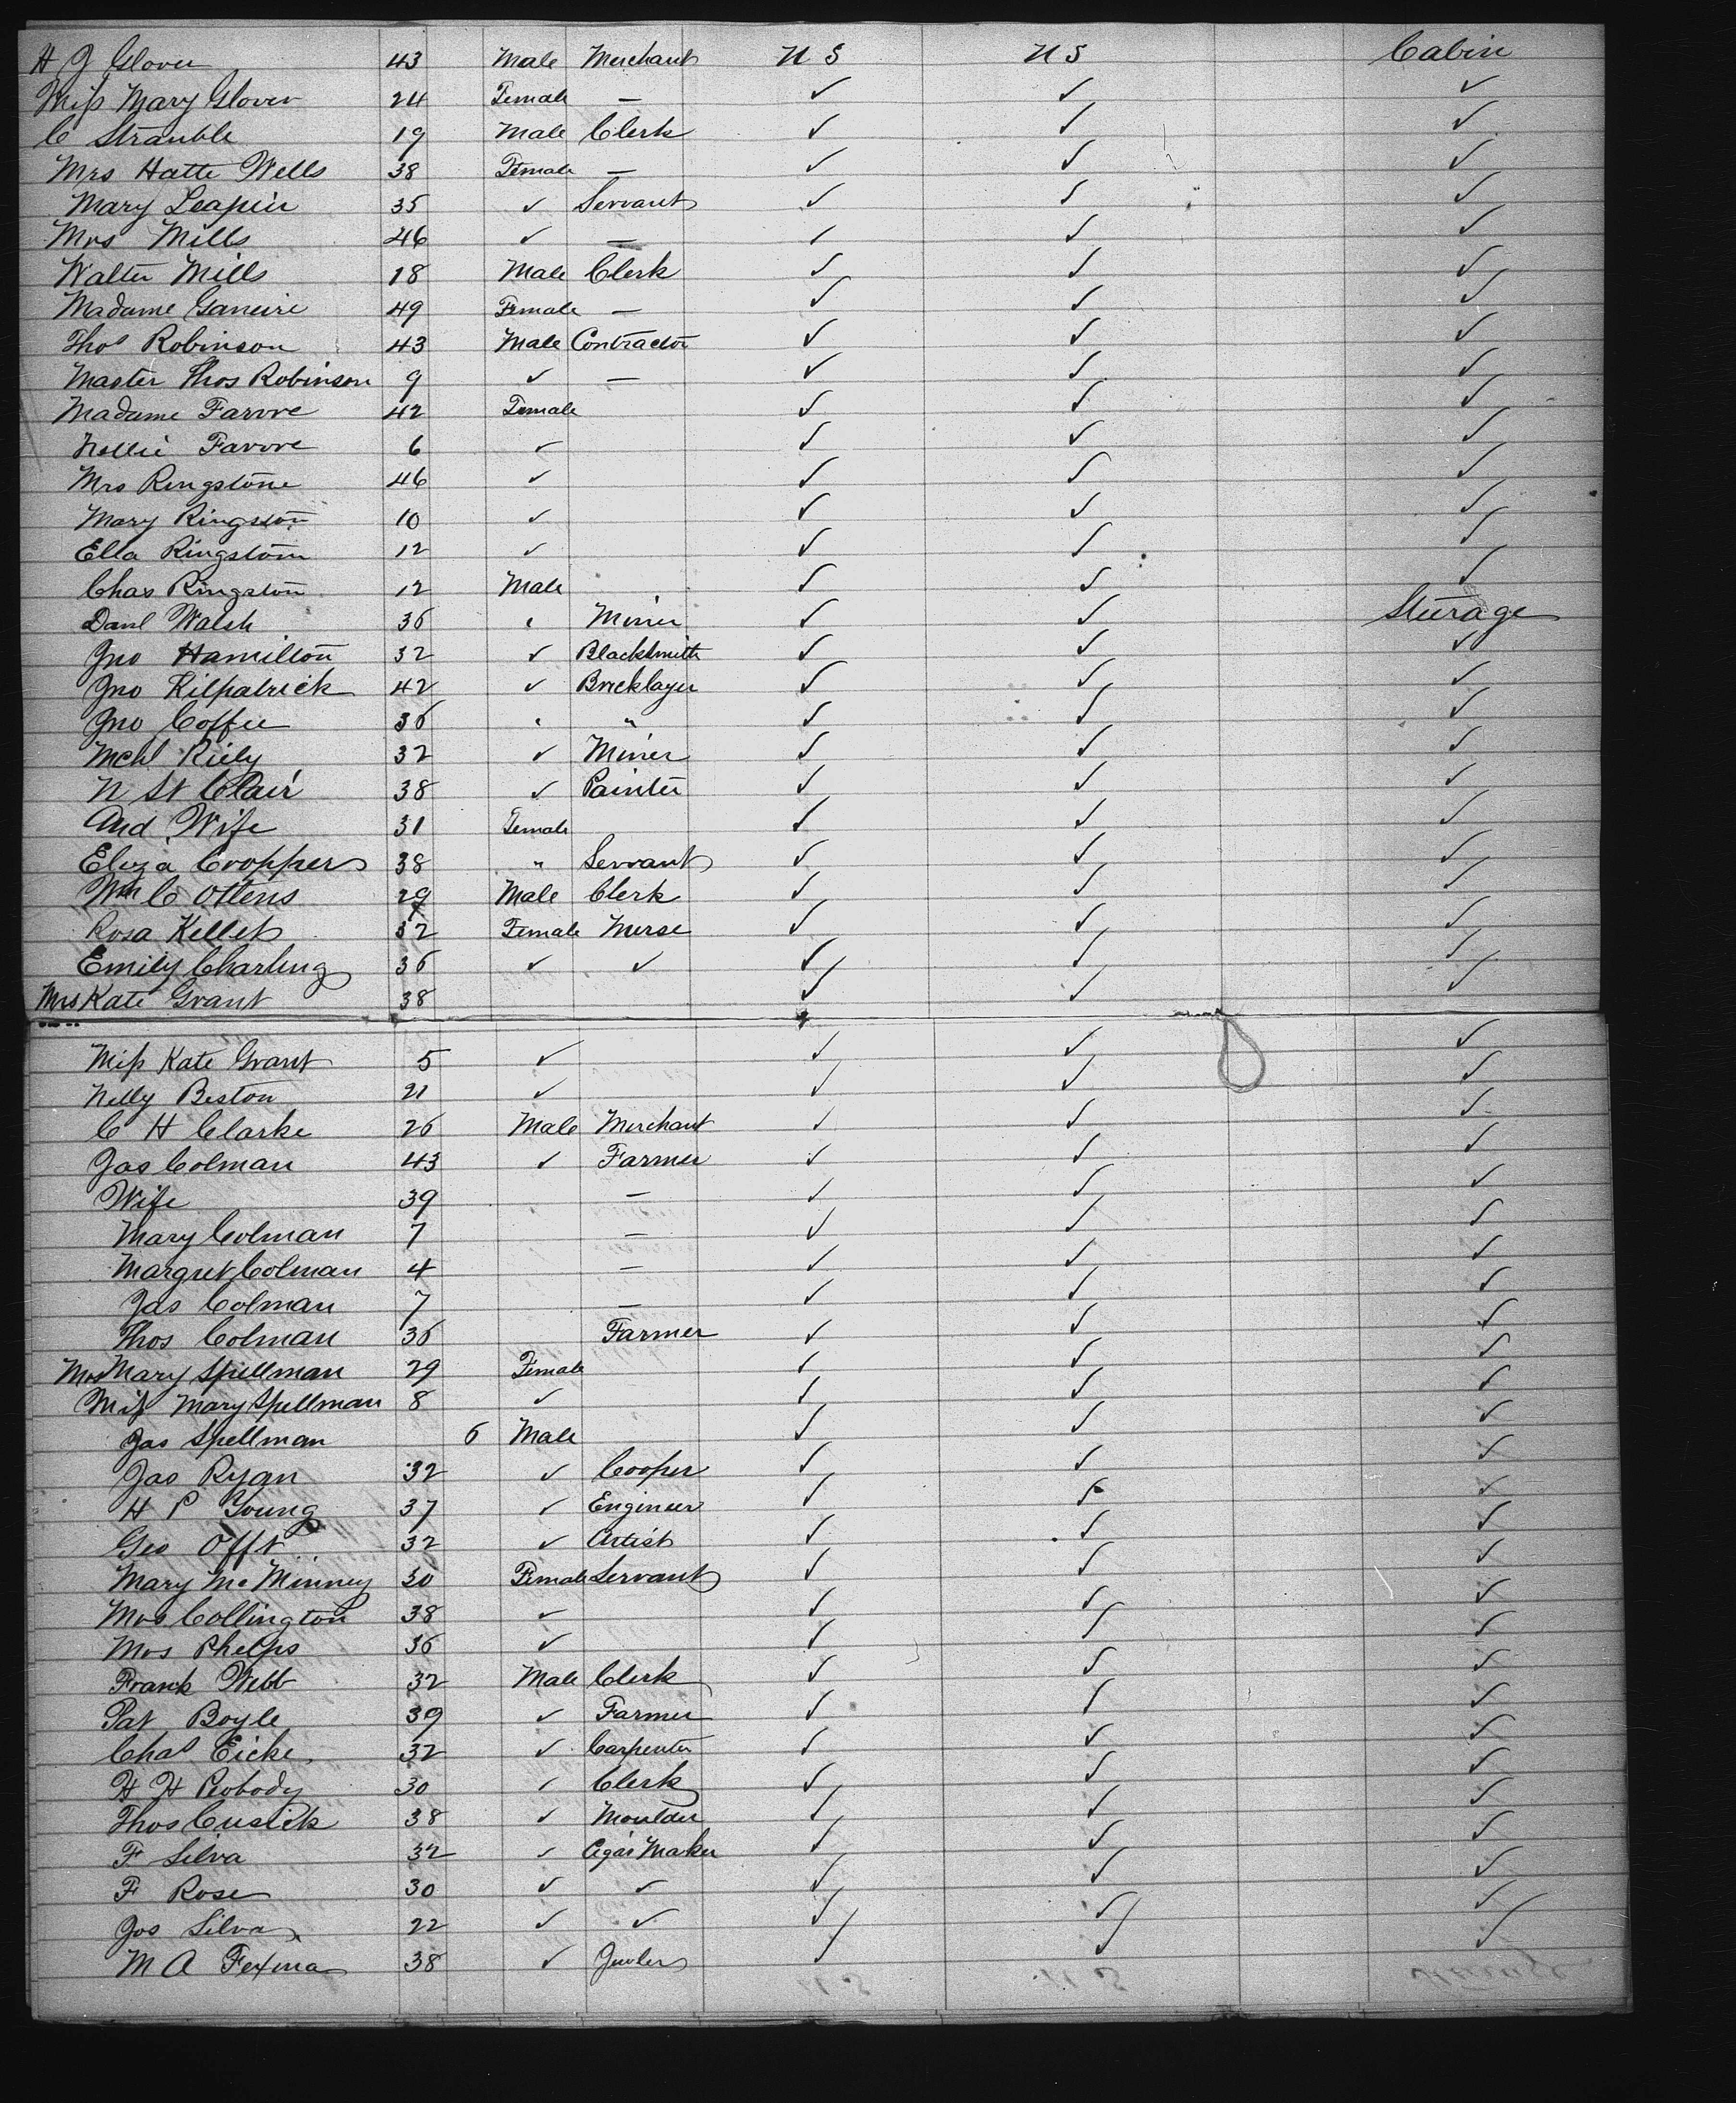 H J Glover 43 Male Merchant U S U S Cabin
Miss Mary Glover 24 Female — ✓ ✓ ✓
C Strauble 19 Male Clerk ✓ ✓ ✓
Mrs Hatte Wells 38 Female — ✓ ✓ ✓
Mary Leapin 35 ✓ Servant ✓ ✓ ✓
Mrs Mills 46 ✓ — ✓ ✓ ✓
Walter Mills 18 Male Clerk ✓ ✓ ✓
Madame Ganeire 49 Female — ✓ ✓ ✓
Thos Robinson 43 Male Contractor ✓ ✓ ✓
Master Thos Robinson 9 ✓ — ✓ ✓ ✓
Madame Favore 42 Female ✓ ✓ ✓
Nellie Favore 6 ✓ ✓ ✓ ✓
Mrs Ringstone 46 ✓ ✓ ✓ ✓
Mary Ringston 10 ✓ ✓ ✓ ✓
Ella Ringstom 12 ✓ ✓ ✓ ✓
Chas Ringston 12 Male ✓ ✓ ✓
Danl Walsh 36 " Miner ✓ ✓ Sturage
Jno Hamilton 32 ✓ Blacksmith ✓ ✓ ✓
Jno Kilpatrick 42 ✓ Bricklayer ✓ ✓ ✓
Jno Coffee 36 " " ✓ ✓ ✓
Mchl Riely 32 ✓ Miner ✓ ✓ ✓
N St Clair 38 ✓ Painter ✓ ✓ ✓
And Wife 31 Female ✓ ✓ ✓
Eliza Coopper 38 " Servant ✓ ✓ ✓
Wm C Ottens 29 Male Clerk ✓ ✓ ✓
Rosa Kellet 32 Female Nurse ✓ ✓ ✓
Emily Charling 36 ✓ ✓ ✓ ✓ ✓
Mrs Kate Grant 38 ✓ ✓ ✓
Miss Kate Grant 5 ✓ ✓ ✓ ✓
Nelly Beston 21 ✓ ✓ ✓ ✓
C H Clarke 26 Male Merchant ✓ ✓ ✓
Jas Colman 43 ✓ Farmer ✓ ✓ ✓
Wife 39 — ✓ ✓ ✓
Mary Colman 7 — ✓ ✓ ✓
Margret Colman 4 — ✓ ✓ ✓
Jas Colman 7 — ✓ ✓ ✓
Thos Colman 36 Farmer ✓ ✓ ✓
Mrs Mary Spellman 29 Female ✓ ✓ ✓
Miss Mary Spellman 8 ✓ ✓ ✓ ✓
Jas Spellman 6 Male ✓ ✓ ✓
Jas Ryan 32 ✓ Cooper ✓ ✓ ✓
H P Young 37 ✓ Engineer ✓ ✓ ✓
Geo Offt 32 ✓ Artist ✓ ✓ ✓
Mary McMinney 30 Female Servant ✓ ✓ ✓
Mrs Collington 38 ✓ ✓ ✓ ✓
Mrs Phelps 36 ✓ ✓ ✓ ✓
Frank Webb 32 Male Clerk ✓ ✓ ✓
Pat Boyle 39 ✓ Farmer ✓ ✓ ✓
Chas Eicke 32 ✓ Carpenter ✓ ✓ ✓
H H Peobody 30 ✓ Clerk ✓ ✓ ✓
Thos Cusick 38 ✓ Moulder ✓ ✓ ✓
F Silva 32 ✓ Cigar Maker ✓ ✓ ✓
F Rose 30 ✓ ✓ ✓ ✓ ✓
Jos Silva 22 ✓ ✓ ✓ ✓ ✓
M A Fexma 38 ✓ Jewler ✓ ✓ ✓